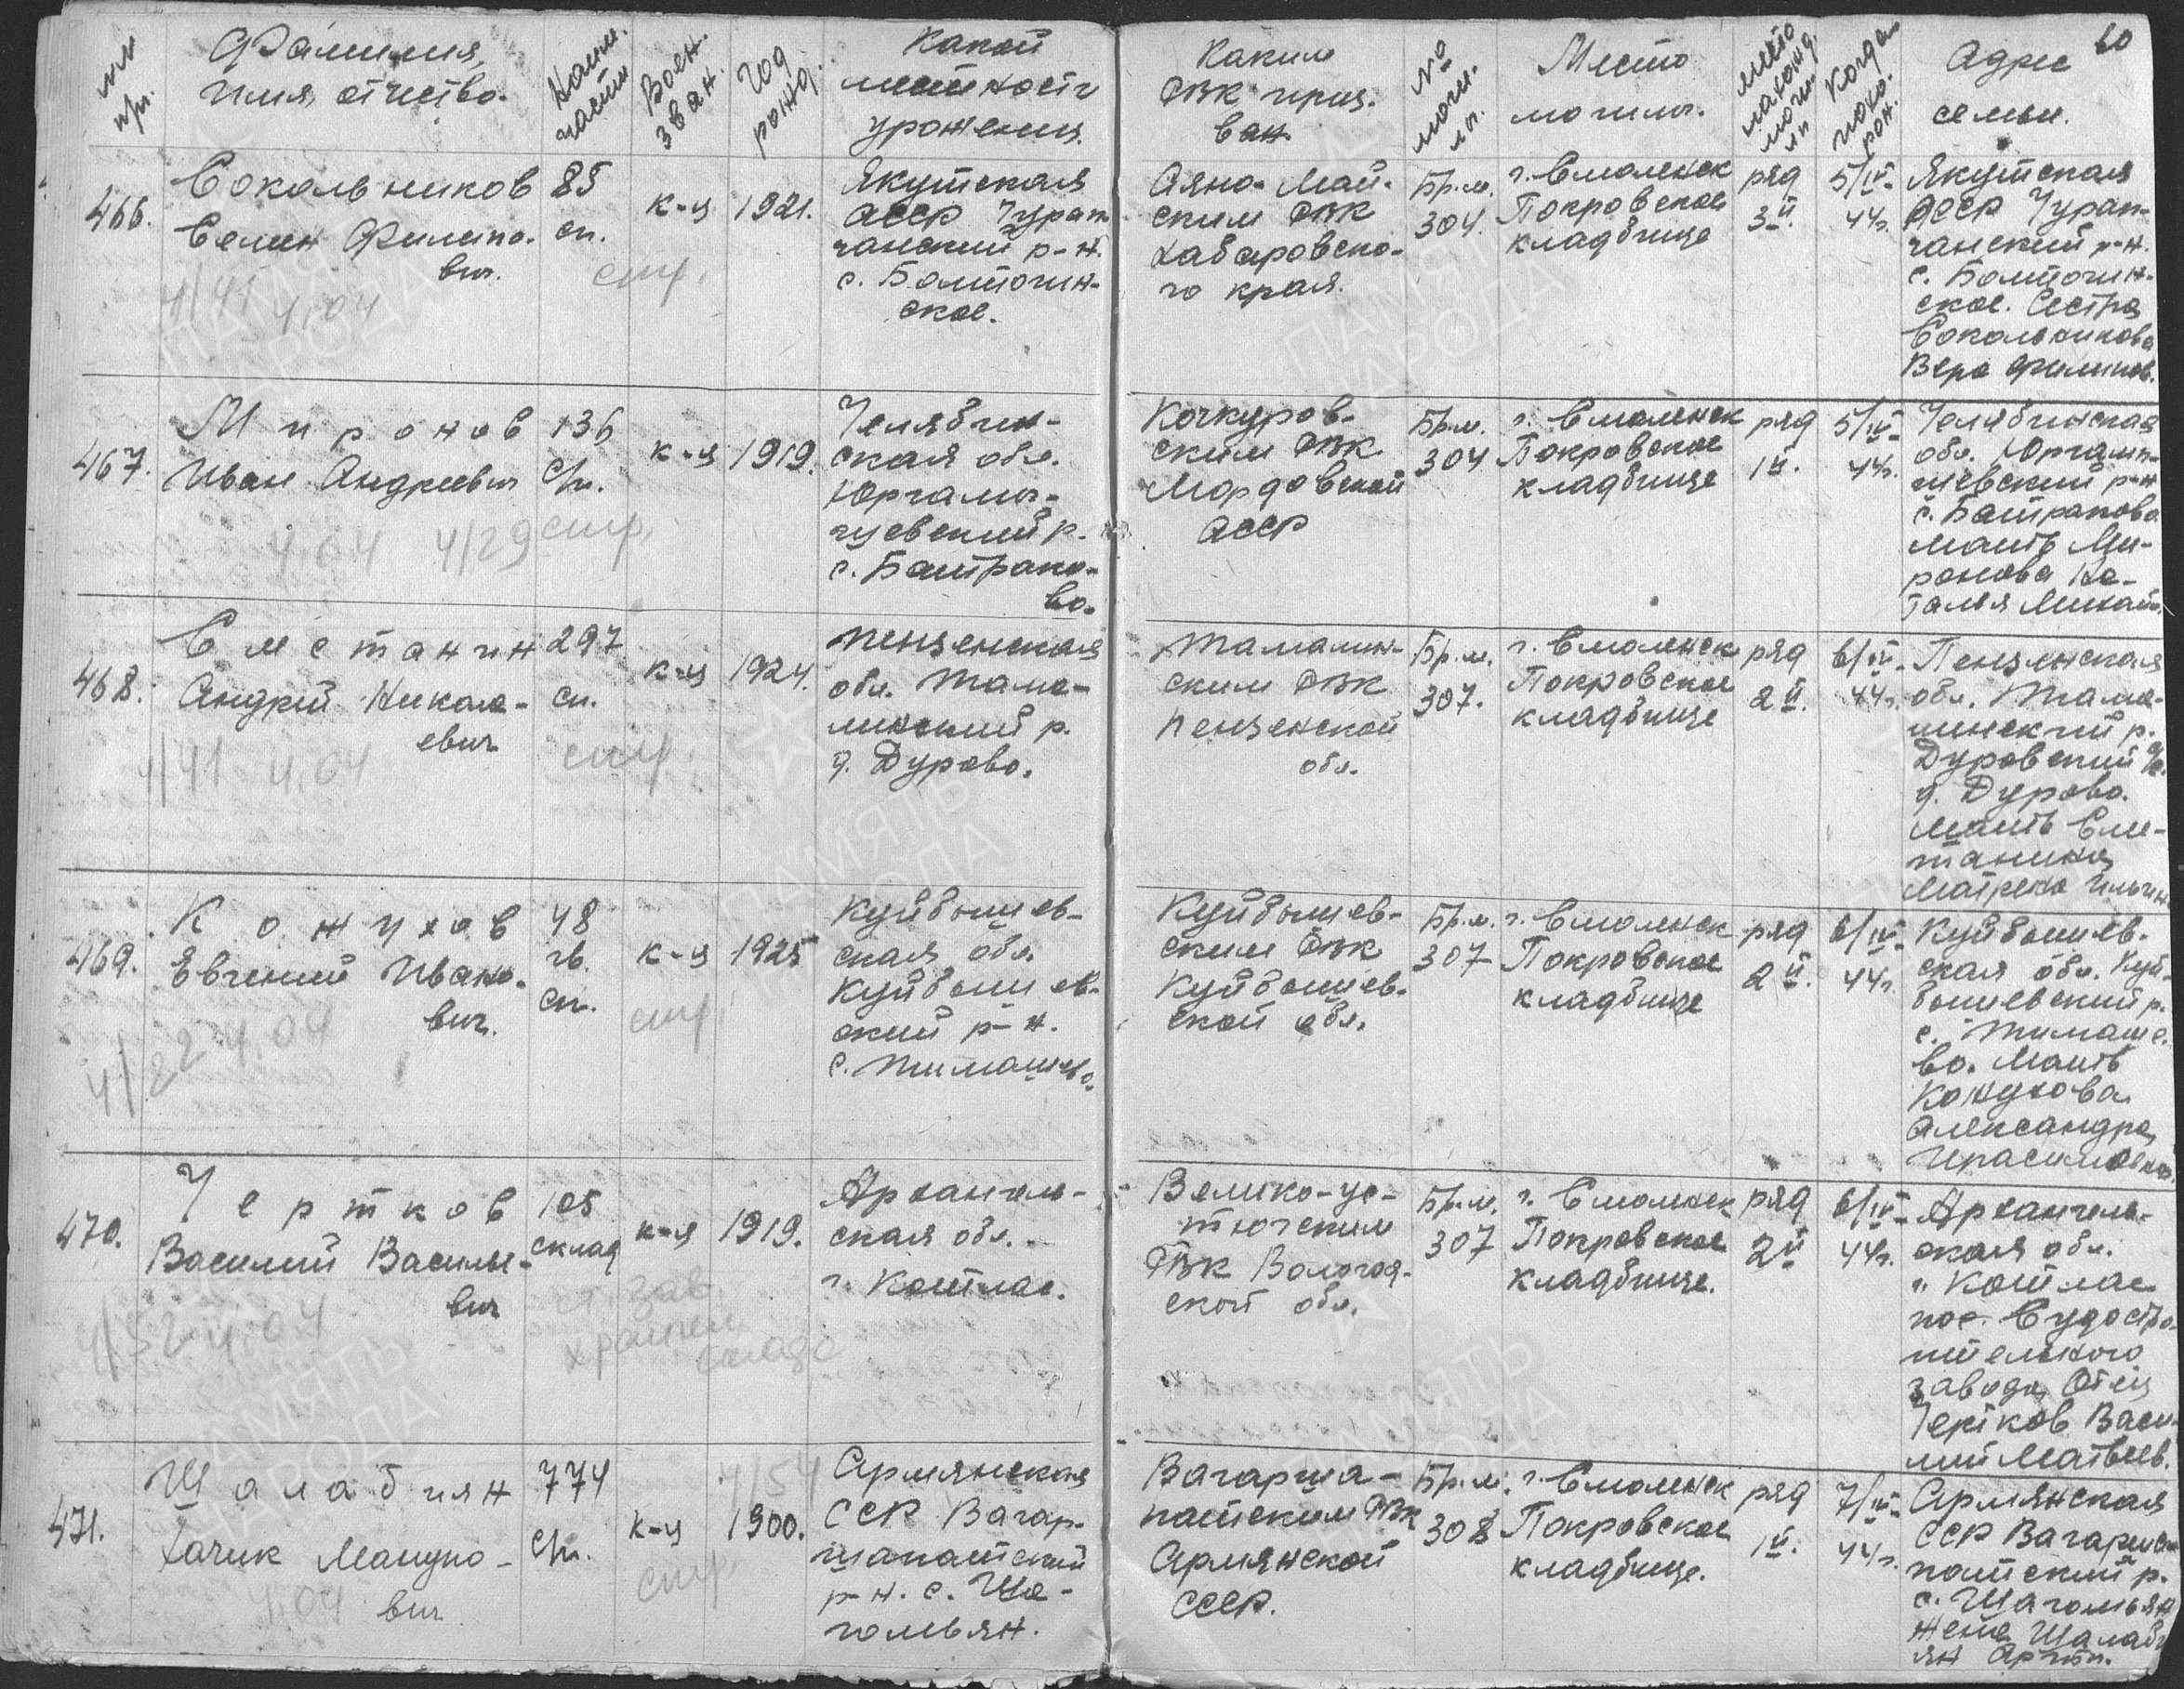 60
№№ п/п.
Фамилия, имя, отчество.
Наим. части
Воен. зван.
Год рожд.
Какой местности уроженец.
Каким РВК призван.
№ могилы.
Место могилы.
Место нахожд. могилы
Когда похорон.
Адрес семьи.
466.
Сокольников
Семен Филипо-
вич.
4/41 4.04
85
сп.
стр.
к-ц
1921.
Якутская
АССР Чурап-
чанский р-н.
с. Болтогин-
ское.
Аяно-Май-
ским РВК
Хабаровско-
го края.
Бр.м.
304.
г. Смоленск
Покровское
кладбище
ряд
3й.
5/IV-
44г.
Якутская
АССР Чурап-
чанский р-н.
с. Болтогин-
ское. Сестра
Сокольникова
Вера Филипов.
467.
Миронов
Иван Андреевич
4.04 4/29
136
С/п.
стр.
к-ц
1919.
Челябин-
ская обл.
Юргамы-
шевский р.
с. Батрако-
во.
Кочкуров-
ским РВК
Мордовской
АССР
Бр.м.
304
г. Смоленск
Покровское
кладбище
ряд
1й.
5/IV-
44г.
Челябинская
обл. Юргамы-
шевский р-н
с. Батраково
мать Ми-
ронова На-
талья Михайл.
468.
Сметанин
Андрей Никола-
евич
4/41 4.04
297
сп.
стр.
к-ц
1924.
Пензенская
обл. Тама-
линский р.
д. Дурово.
Тамалин-
ским РВК
Пензенской
обл.
Бр.м.
307.
г. Смоленск
Покровское
кладбище
ряд
2й.
6/IV-
44г.
Пензенская
обл. Тама-
линский р.
Дуровский с/с.
д. Дурово.
мать Сме-
танина
Матрена Ильин
469.
Кожухов
Евгений Ивано-
вич.
4/82 4.04
48
гв.
сп.
стр.
к-ц
1925
Куйбышев-
ская обл.
Куйбышев-
ский р-н.
с. Тимашево.
Куйбышев-
ским РВК
Куйбышев-
ской обл.
Бр.м.
307
г. Смоленск
Покровское
кладбище
ряд
2й.
6/IV-
44г.
Куйбышев-
ская обл. Куй-
бышевский р.
с. Тимаше-
во. Мать
Кожухова
Александра
Герасимовна
470.
Чертков
Василий Василье-
вич
4/52 4.04
105
склад
ст. зав.
хранил
склада
к-я
1919.
Архангель-
ская обл.
г. Котлас.
Велико-ус-
тюгским
РВК Вологод-
ской обл.
Бр.м.
307
г. Смоленск
Покровское
кладбище.
ряд
2й
6/IV-
44г.
Архангель-
ская обл.
г. Котлас
пос. Судостро-
ительного
завода, Отец
Чертков Васи-
лий Матвеев.
471.
Шалабиян
Хачик Мануко-
вич
4.04
774
С/п.
стр.
к-ц
4/54
1900.
Армянская
ССР Вагар-
шапатский
р-н. с. Ша-
гольян.
Вагарша-
патским РВК
Армянской
СССР.
Бр.м.
308
г. Смоленск
Покровское
кладбище.
ряд
1й.
7/IV-
44г.
Армянская
ССР Вагарша-
патский р.
с. Шагольян
жена Шалаби
ян
ПАМЯТЬ НАРОДА